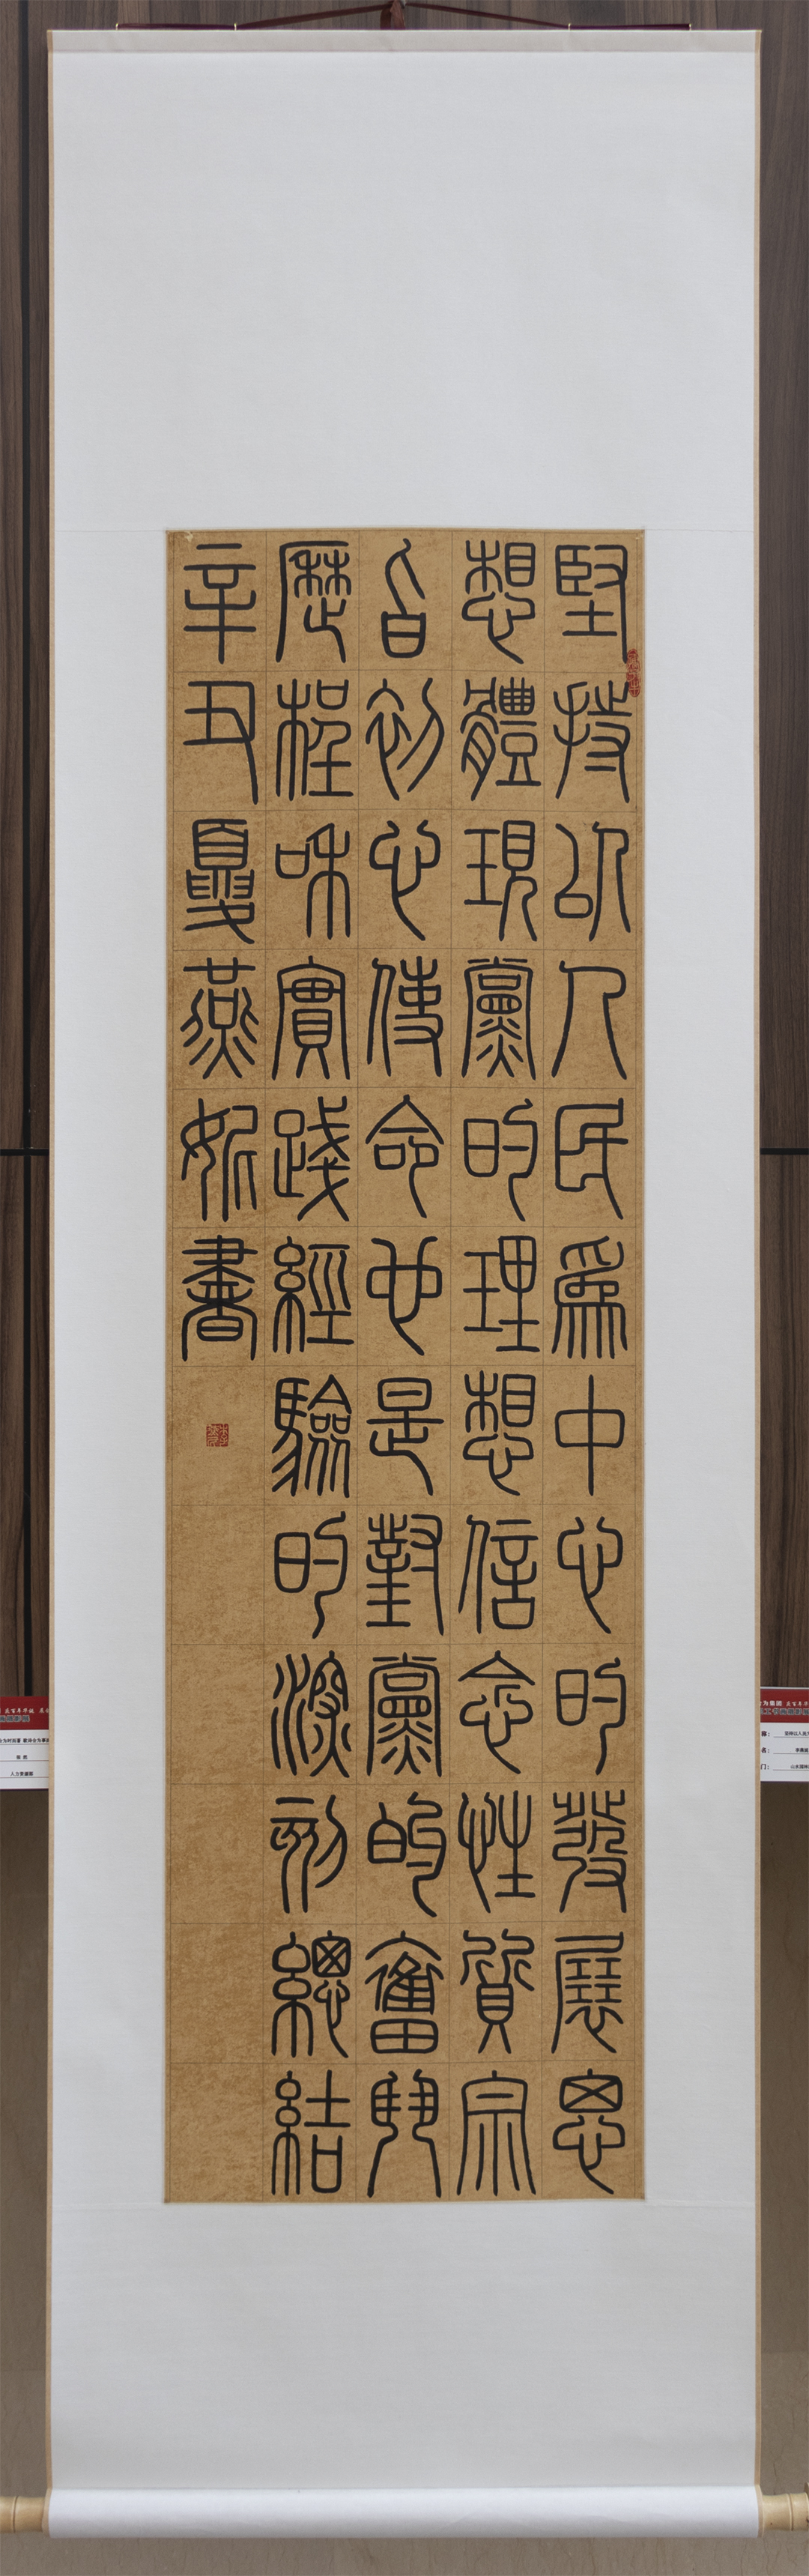 堅持以人民為中心的發展思
想體現黨的理想信念性質宗
旨初心使命也是對黨的奮鬥
歷程和實踐經驗的深刻總結
辛丑夏燕妮書